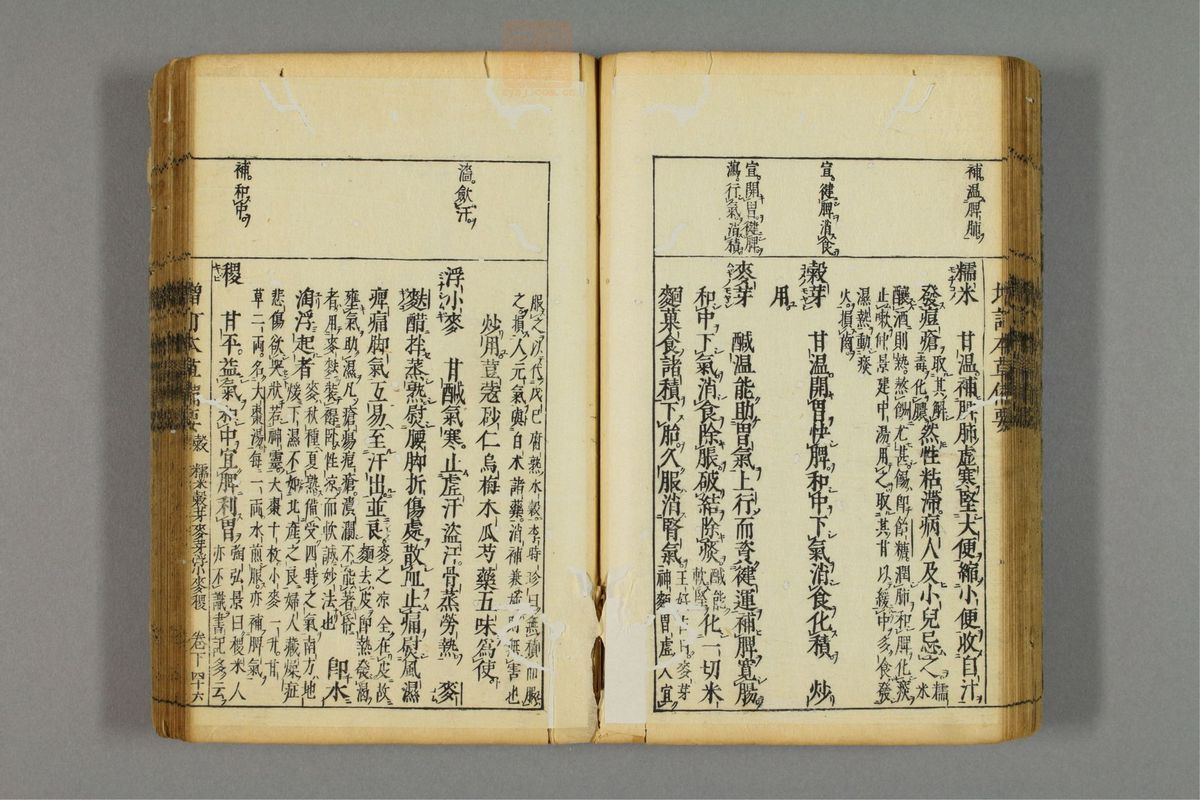 補。温脾肺
宣。健脾消食
宣。開胃健脾
瀉。行氣消積
糯米 甘温補脾肺虛寒堅大便縮小便收自汗
發痘瘡取其解毒化膿然性粘滯病人及小兒忌之糯米
釀酒則熱熬餳尤甚餳即飴糖潤肺和脾化痰
止嗽仲景建中湯用之取其甘以緩中多食發
濕熱動痰
火損齒
穀芽 甘温開胃快脾和中下氣消食化積 炒
用
麥芽 鹹温能助胃氣上行而資健運補脾寛腸
和中下氣消食除脹破結除痰鹹能軟堅化一切米
麵菓食諸積下胎久服消腎氣王好古曰麥芽神麴胃虛人宜
澁。斂汗
補。和中
服之以代戊巳腐熟水穀李時珍曰無積而服
之損人元氣與白朮諸藥消補兼施則無害也
炒用荳蔻砂仁烏梅木瓜芍藥五味為使
浮小麥 甘鹹氣寒止虛汗盜汗骨蒸勞熱 麥
麩醋拌蒸熱熨腰脚折傷處散血止痛熨風濕
痺痛脚氣互易至汗出並良麥之凉全在皮故麵去皮即熱發渴
壅氣助濕凡瘡瘍痘瘡潰瀾不能著席
者用麥麩裝褥臥性凉而軟誠妙法也 即水
淘浮起者麥秋種夏熟備受四時之氣南方地煖下濕不如北產之良婦人臟燥症
悲傷欲哭狀若神靈大棗十枚小麥一升甘
草二兩名大棗湯每一兩水煎服亦補脾氣
稷 甘平益氣和中宜脾利胃陶弘景曰稷米人亦不識書記多云
增訂本草備要 穀 糯米穀芽麥芽浮小麥稷 卷下 四十六